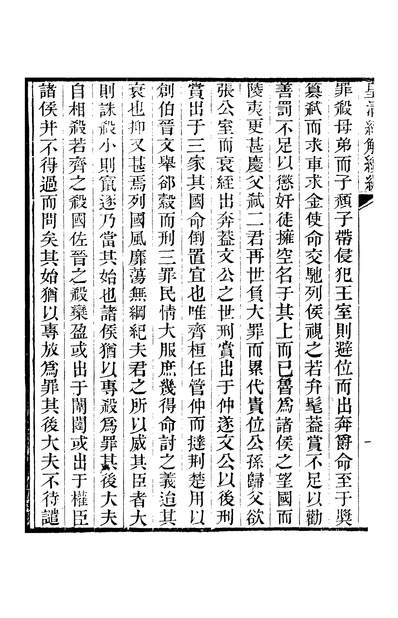 皇清經解續編
罪殺母弟而子頹子帶侵犯王室則避位而出奔爵命至于獎
簒弒而求車求金使命交馳列侯視之若弁髦蓋賞不足以勸
善罰不足以懲奸徒擁空名于其上而已魯爲諸侯之望國而
陵夷更甚慶父弒二君再世負大罪而累代貴位公孫歸父欲
張公室而衰絰出奔蓋文公之世刑賞出于仲遂文公以後刑
賞出于三家其國命倒置宜也唯齊桓任管仲而撻荆楚用以
創伯晉文舉郤縠而刑三罪民情大服庶幾得命討之義迨其
衰也抑又甚焉列國風靡蕩無綱紀夫君之所以威其臣者大
則誅殺小則竄逐乃當其始也諸侯猶以專殺爲罪其後大夫
自相殺若齊之殺國佐晉之殺欒盈或出于閨闥或出于權臣
諸侯并不得過而問矣其始猶以專放爲罪其後大夫不待譴